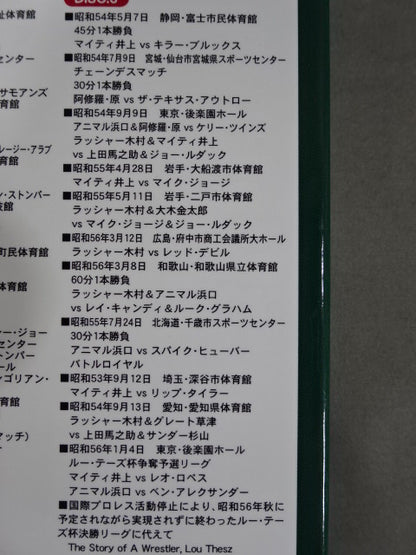 DISC.3
■昭和54年5月7日 静岡・富士市民体育館
45分1本勝負
マイティ井上 vs キラー・ブルックス
■昭和54年7月9日 宮城・仙台市宮城県スポーツセンター
チェーンデスマッチ
30分1本勝負
阿修羅・原 vs ザ・テキサス・アウトロー
■昭和54年9月9日 東京・後楽園ホール
アニマル浜口&阿修羅・原 vs ケリー・ツインズ
ラッシャー木村&マイティ井上
vs 上田馬之助&ジョー・ルダック
■昭和55年4月28日 岩手・大船渡市体育館
マイティ井上 vs マイク・ジョージ
■昭和55年5月11日 岩手・二戸市体育館
ラッシャー木村&大木金太郎
vs マイク・ジョージ&ジョー・ルダック
■昭和56年3月12日 広島・府中市商工会議所大ホール
ラッシャー木村 vs レッド・デビル
■昭和56年3月8日 和歌山・和歌山県立体育館
60分1本勝負
ラッシャー木村&アニマル浜口
vs レイ・キャンディ&ルーク・グラハム
■昭和55年7月24日 北海道・千歳市スポーツセンター
30分1本勝負
アニマル浜口 vs スパイク・ヒューバー
バトルロイヤル
■昭和53年9月12日 埼玉・深谷市体育館
マイティ井上 vs リップ・タイラー
■昭和54年9月13日 愛知・愛知県体育館
ラッシャー木村&グレート草津
vs 上田馬之助&サンダー杉山
■昭和56年1月4日 東京・後楽園ホール
ルー・テーズ杯争奪予選リーグ
マイティ井上 vs レオ・ロペス
アニマル浜口 vs ベン・アレクサンダー
■国際プロレス活動停止により、昭和56年秋に
予定されながら実現されずに終わったルー・テー
ズ杯決勝リーグに代えて
The Story of A Wrestler, Lou Thesz
育館
センター
サモアンズ
育館
ルージー・アラブ
ン・ストンパー
館
町民体育館
体育館
ャー・ジョー
センター
トンパー
ール
ンゴリアン・
育館
マッチ)